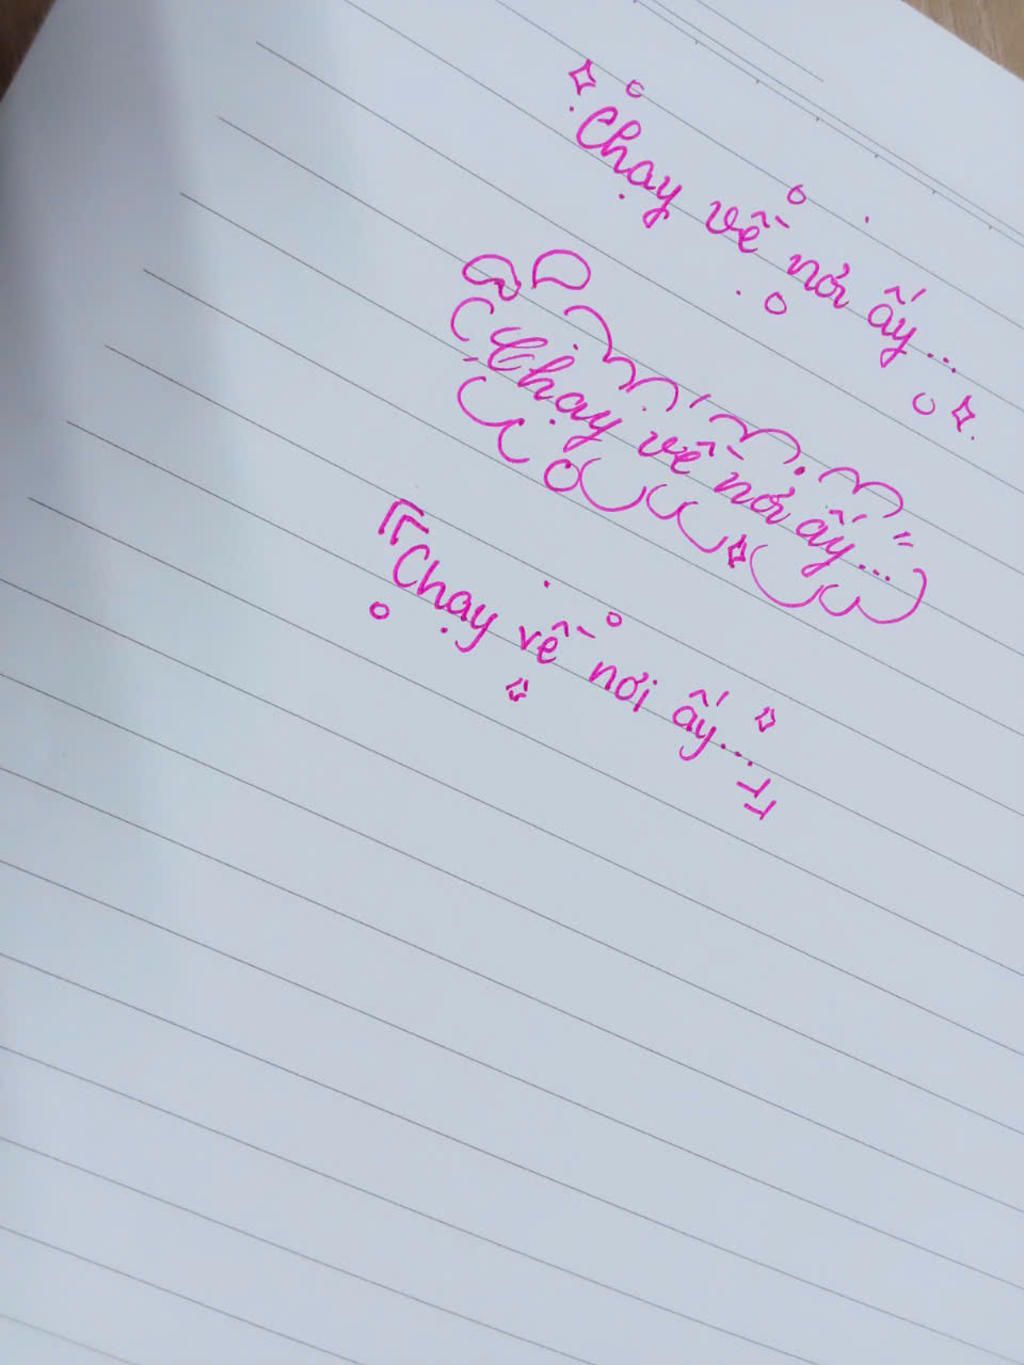 Chạy về nơi ấy...
Chạy về nơi ấy...
Chạy về nơi ấy...